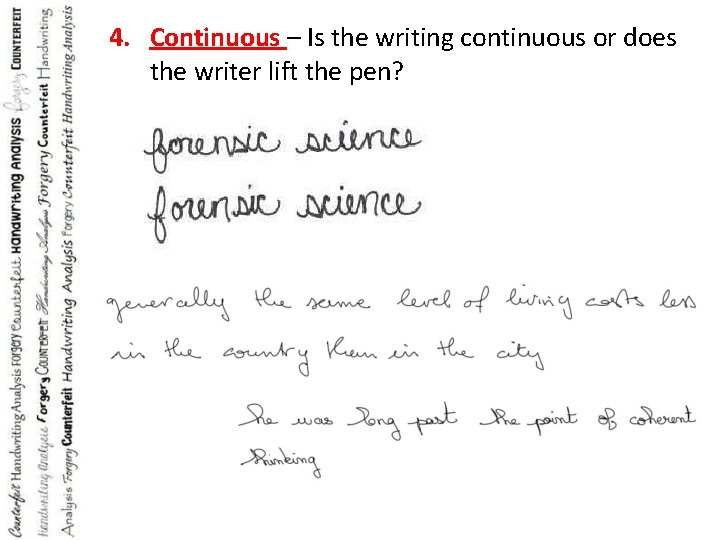 4. Continuous – Is the writing continuous or does
the writer lift the pen?
forensic science
forensic science
generally the same level of living costs less
in the country them in the city
he was long past the point of coherent
thinking
Counterfeit Handwriting Analysis Forgery Counterfeit Handwriting Analysis Forgery Counterfeit
Handwriting Analysis Forgery Counterfeit Handwriting Analysis Forgery Counterfeit Handwriting
Analysis Forgery Counterfeit Handwriting Analysis Forgery Counterfeit Handwriting Analysis